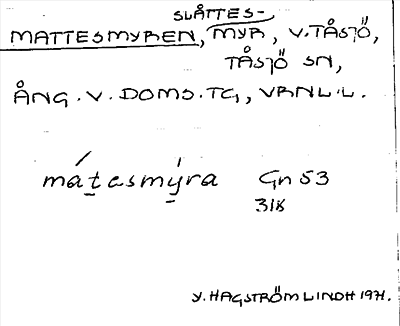 SLÅTTES-
MATTESMYREN, MYR, V. TÅSJÖ,
TÅSJÖ SN,
ÅNG. V. DOMS. TG, VRNL.L.
mátesmýra Gn 53
318
Y. HAGSTRÖM LINDH 1971.